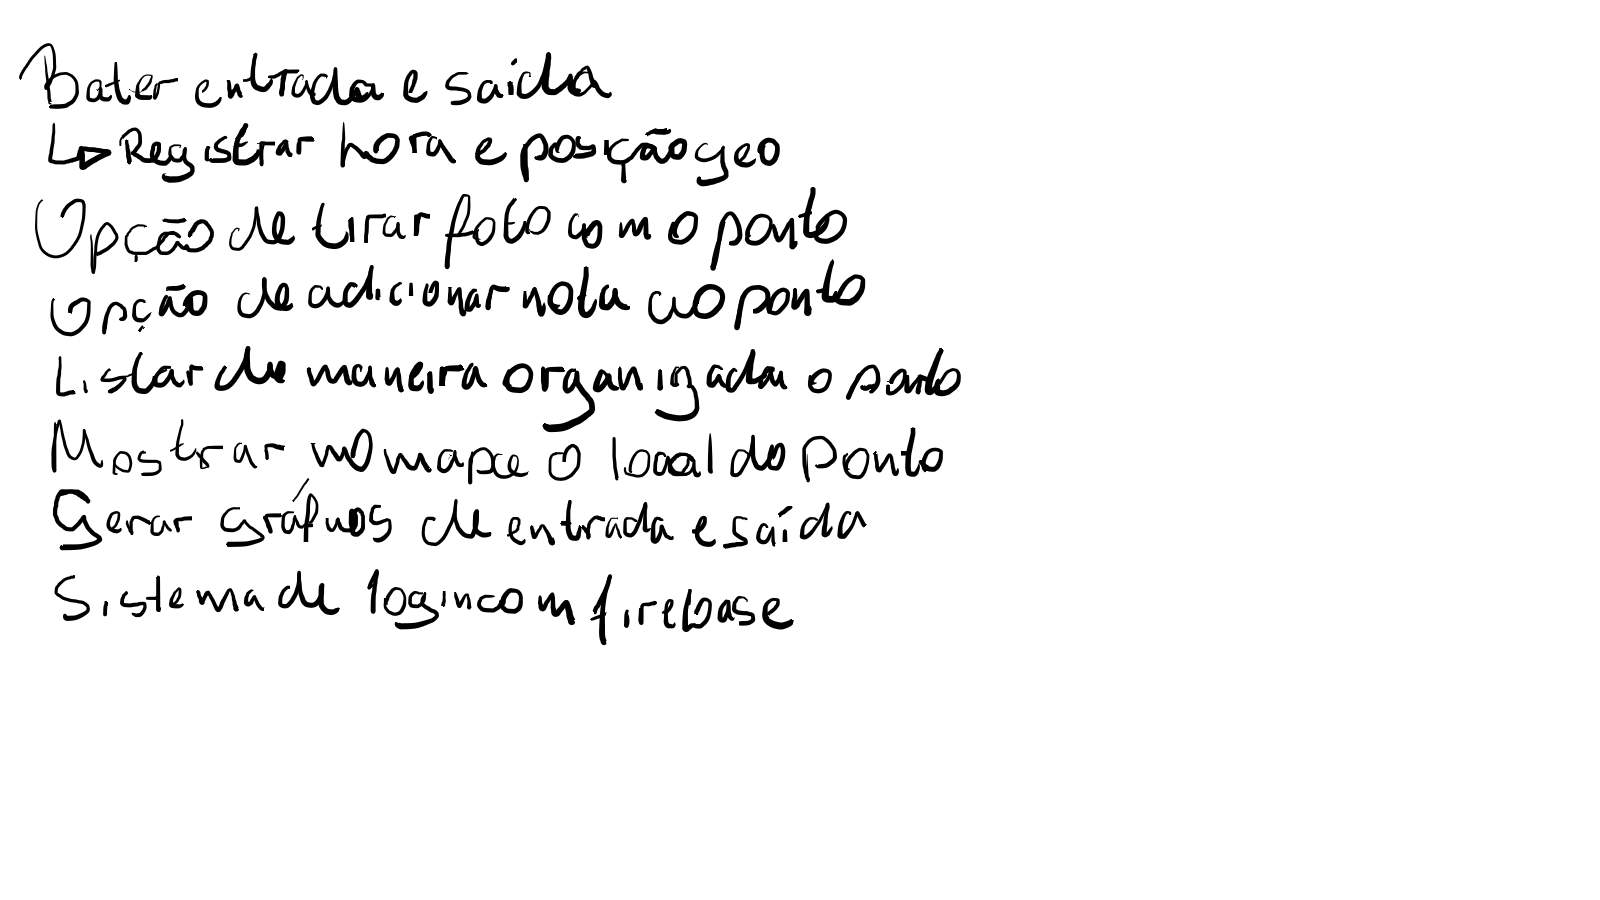 Bater entrada e saida
↳ Registrar hora e posição geo
Opção de tirar foto com o ponto
Opção de adicionar nota ao ponto
Listar de maneira organizada o ponto
Mostrar no mapa o local do ponto
Gerar gráficos de entrada e saída
Sistema de login com firebase